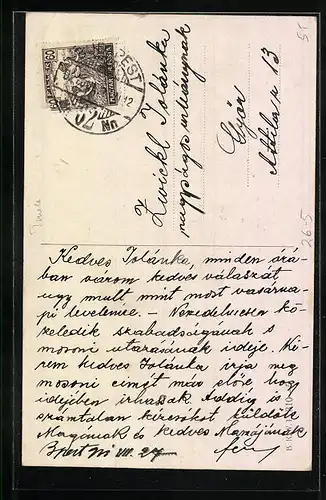 Zwickl Jolánka
nagyságos urleánynak
Győr
Attila u 13
Kedves Jolánka, minden órá-
ban várom kedves válaszát
ugy mult mint most vasárna-
pi levelemre. – közeledik szabadságának s
mosoni utazásának ideje. Ké-
rem kedves Jolánka irja meg
mosoni cimét már előre, hogy
idejében irhassak. Addig is
számtalan kézcsókot küldök
és kedves Mamájának
Bpest